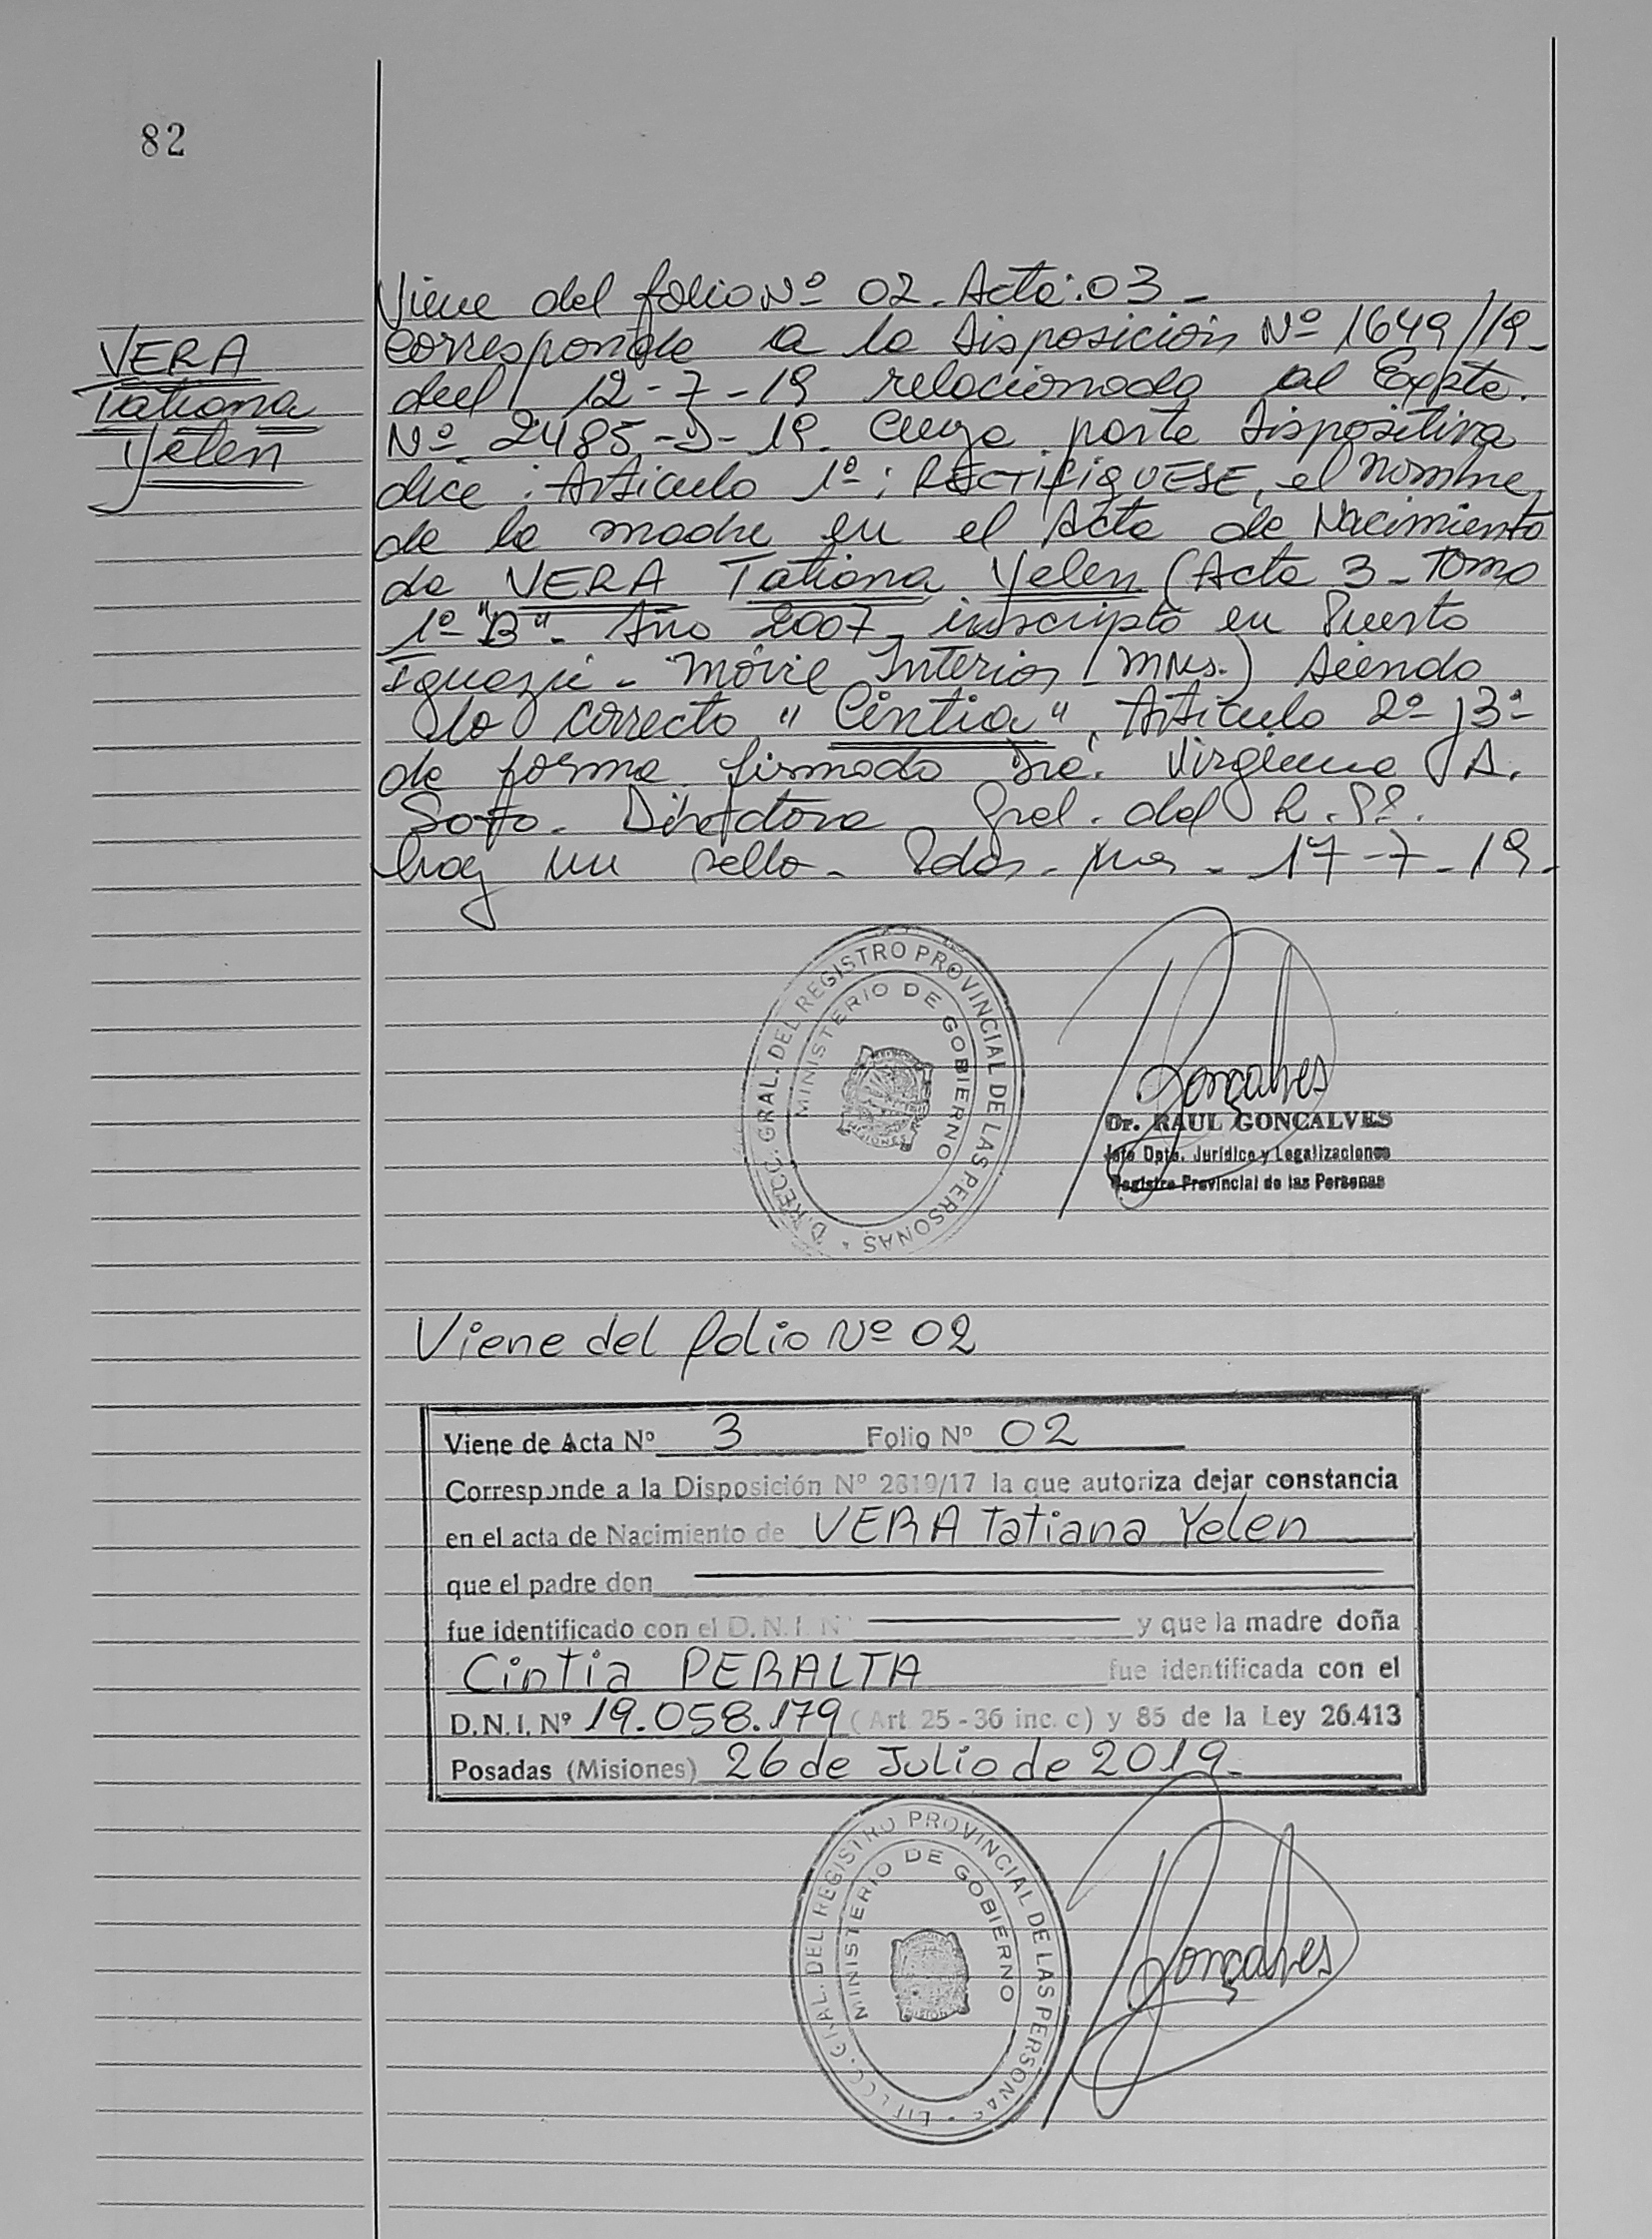 82
VERA
Tatiana
Yelen
Viene del folio Nº 02. Acta: 03 -
corresponde a la Disposición Nº 1649/19-
del 12-7-19 relacionado al Expte.
Nº 2485-D-19. Cuya parte Dispositiva
dice: Artículo 1º: RECTIFIQUESE, el nombre
de la madre en el Acta de Nacimiento
de VERA Tatiana Yelen (Acta 3 - Tomo
1º "B" - Año 2007, inscripto en Puerto
Iguazú - Móvil Interior (Mnes.) Siendo
lo correcto "Cintia". Artículo 2º y 3º
de forma firmado Dra. Virginia A.
Soto. Directora Gral. del R.P.P.
hay un sello - Pdas. Mnes - 17-7-19.
DIRECC. GRAL. DEL REGISTRO PROVINCIAL DE LAS PERSONAS
MINISTERIO DE GOBIERNO
MISIONES
Gonçalves
Dr. RAUL GONCALVES
Jefe Dpto. Jurídico y Legalizaciones
Registro Provincial de las Personas
Viene del folio Nº 02
Viene de Acta Nº 3 Folio Nº 02
Corresponde a la Disposición Nº 2819/17 la que autoriza dejar constancia
en el acta de Nacimiento de VERA Tatiana Yelen
que el padre don
fue identificado con el D.N.I. Nº y que la madre doña
Cintia PERALTA fue identificada con el
D.N.I. Nº 19.058.179 (Art. 25 - 36 inc. c) y 85 de la Ley 26.413
Posadas (Misiones) 26 de Julio de 2019.
DIRECC. GRAL. DEL REGISTRO PROVINCIAL DE LAS PERSONAS
MINISTERIO DE GOBIERNO
Gonçalves